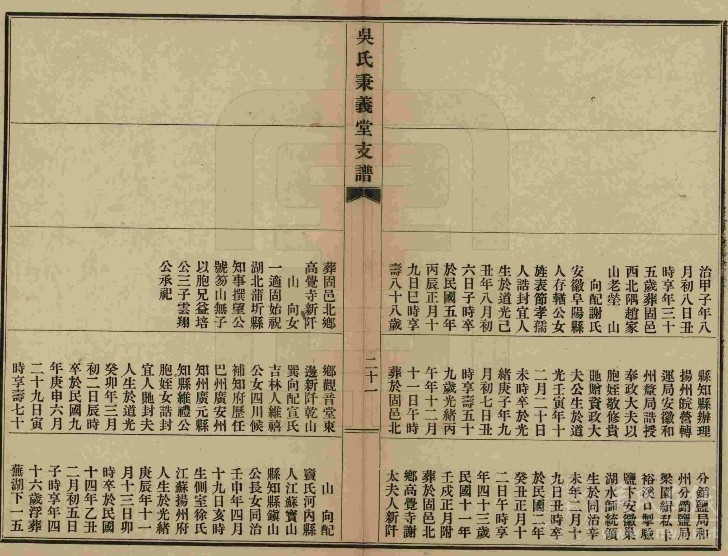 治甲子年八
月初八日丑
時享年三十
五歲葬固邑
西北隅趙家
山老塋山
向配謝氏
安徽阜陽縣
人存轍公女
旌表節孝孺
人誥封宜人
生於道光己
丑年八月初
六日子時卒
於民國五年
丙辰正月十
九日巳時享
壽八十八歲
縣知縣辦理
揚州皖營轉
運局安徽和
州釐局誥授
奉政大夫以
胞姪敬修貴
馳贈資政大
夫公生於道
光壬寅年十
二月二十日
未時卒於光
緒庚子年九
月初七日丑
時享壽五十
九歲光緒丙
午年十二月
十一日午時
葬於固邑北
分銷鹽局和
州分銷鹽局
梁園緝私局
裕溪口掣驗
鹽卞安徽巢
湖水師統領
生於同治辛
未年二月十
九日丑時卒
於民國二年
癸丑正月十
二日午時享
年四十三歲
民國十一年
壬戌正月附
葬於固邑北
鄉高覺寺謝
太夫人新阡
吳氏秉義堂支譜
二十一
葬固邑北鄉
高覺寺新阡
山向女
一適固始祝
湖北蒲圻縣
知事撰望公
號笏山無子
以胞兄益培
公三子雲翔
公承祀
鄉觀音堂東
邊新阡乾山
巽向配宣氏
吉林人維禧
公女四川候
補知府歷任
巴州廣安州
知州廣元縣
知縣維禮公
胞姪女誥封
宜人馳封夫
人生於道光
癸卯年三月
初二日辰時
卒於民國九
年庚申六月
二十九日寅
時享壽七十
山向配
竇氏河內縣
人江蘇寶山
縣知縣鎮山
公長女同治
壬申年四月
十九日亥時
生側室徐氏
江蘇揚州府
人生於光緒
庚辰年十一
月十三日卯
時卒於民國
十四年乙丑
二月初五日
子時享年四
十六歲浮葬
蕪湖下一五